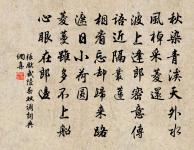 秋染青溪天外水
風棹採菱還
波上逢郎密意傳
語近隔叢蓮
相看忘卻歸來路
遮日小荷圓
菱蔓雖多不上船
心眼在郎邊
武陵春秋詞